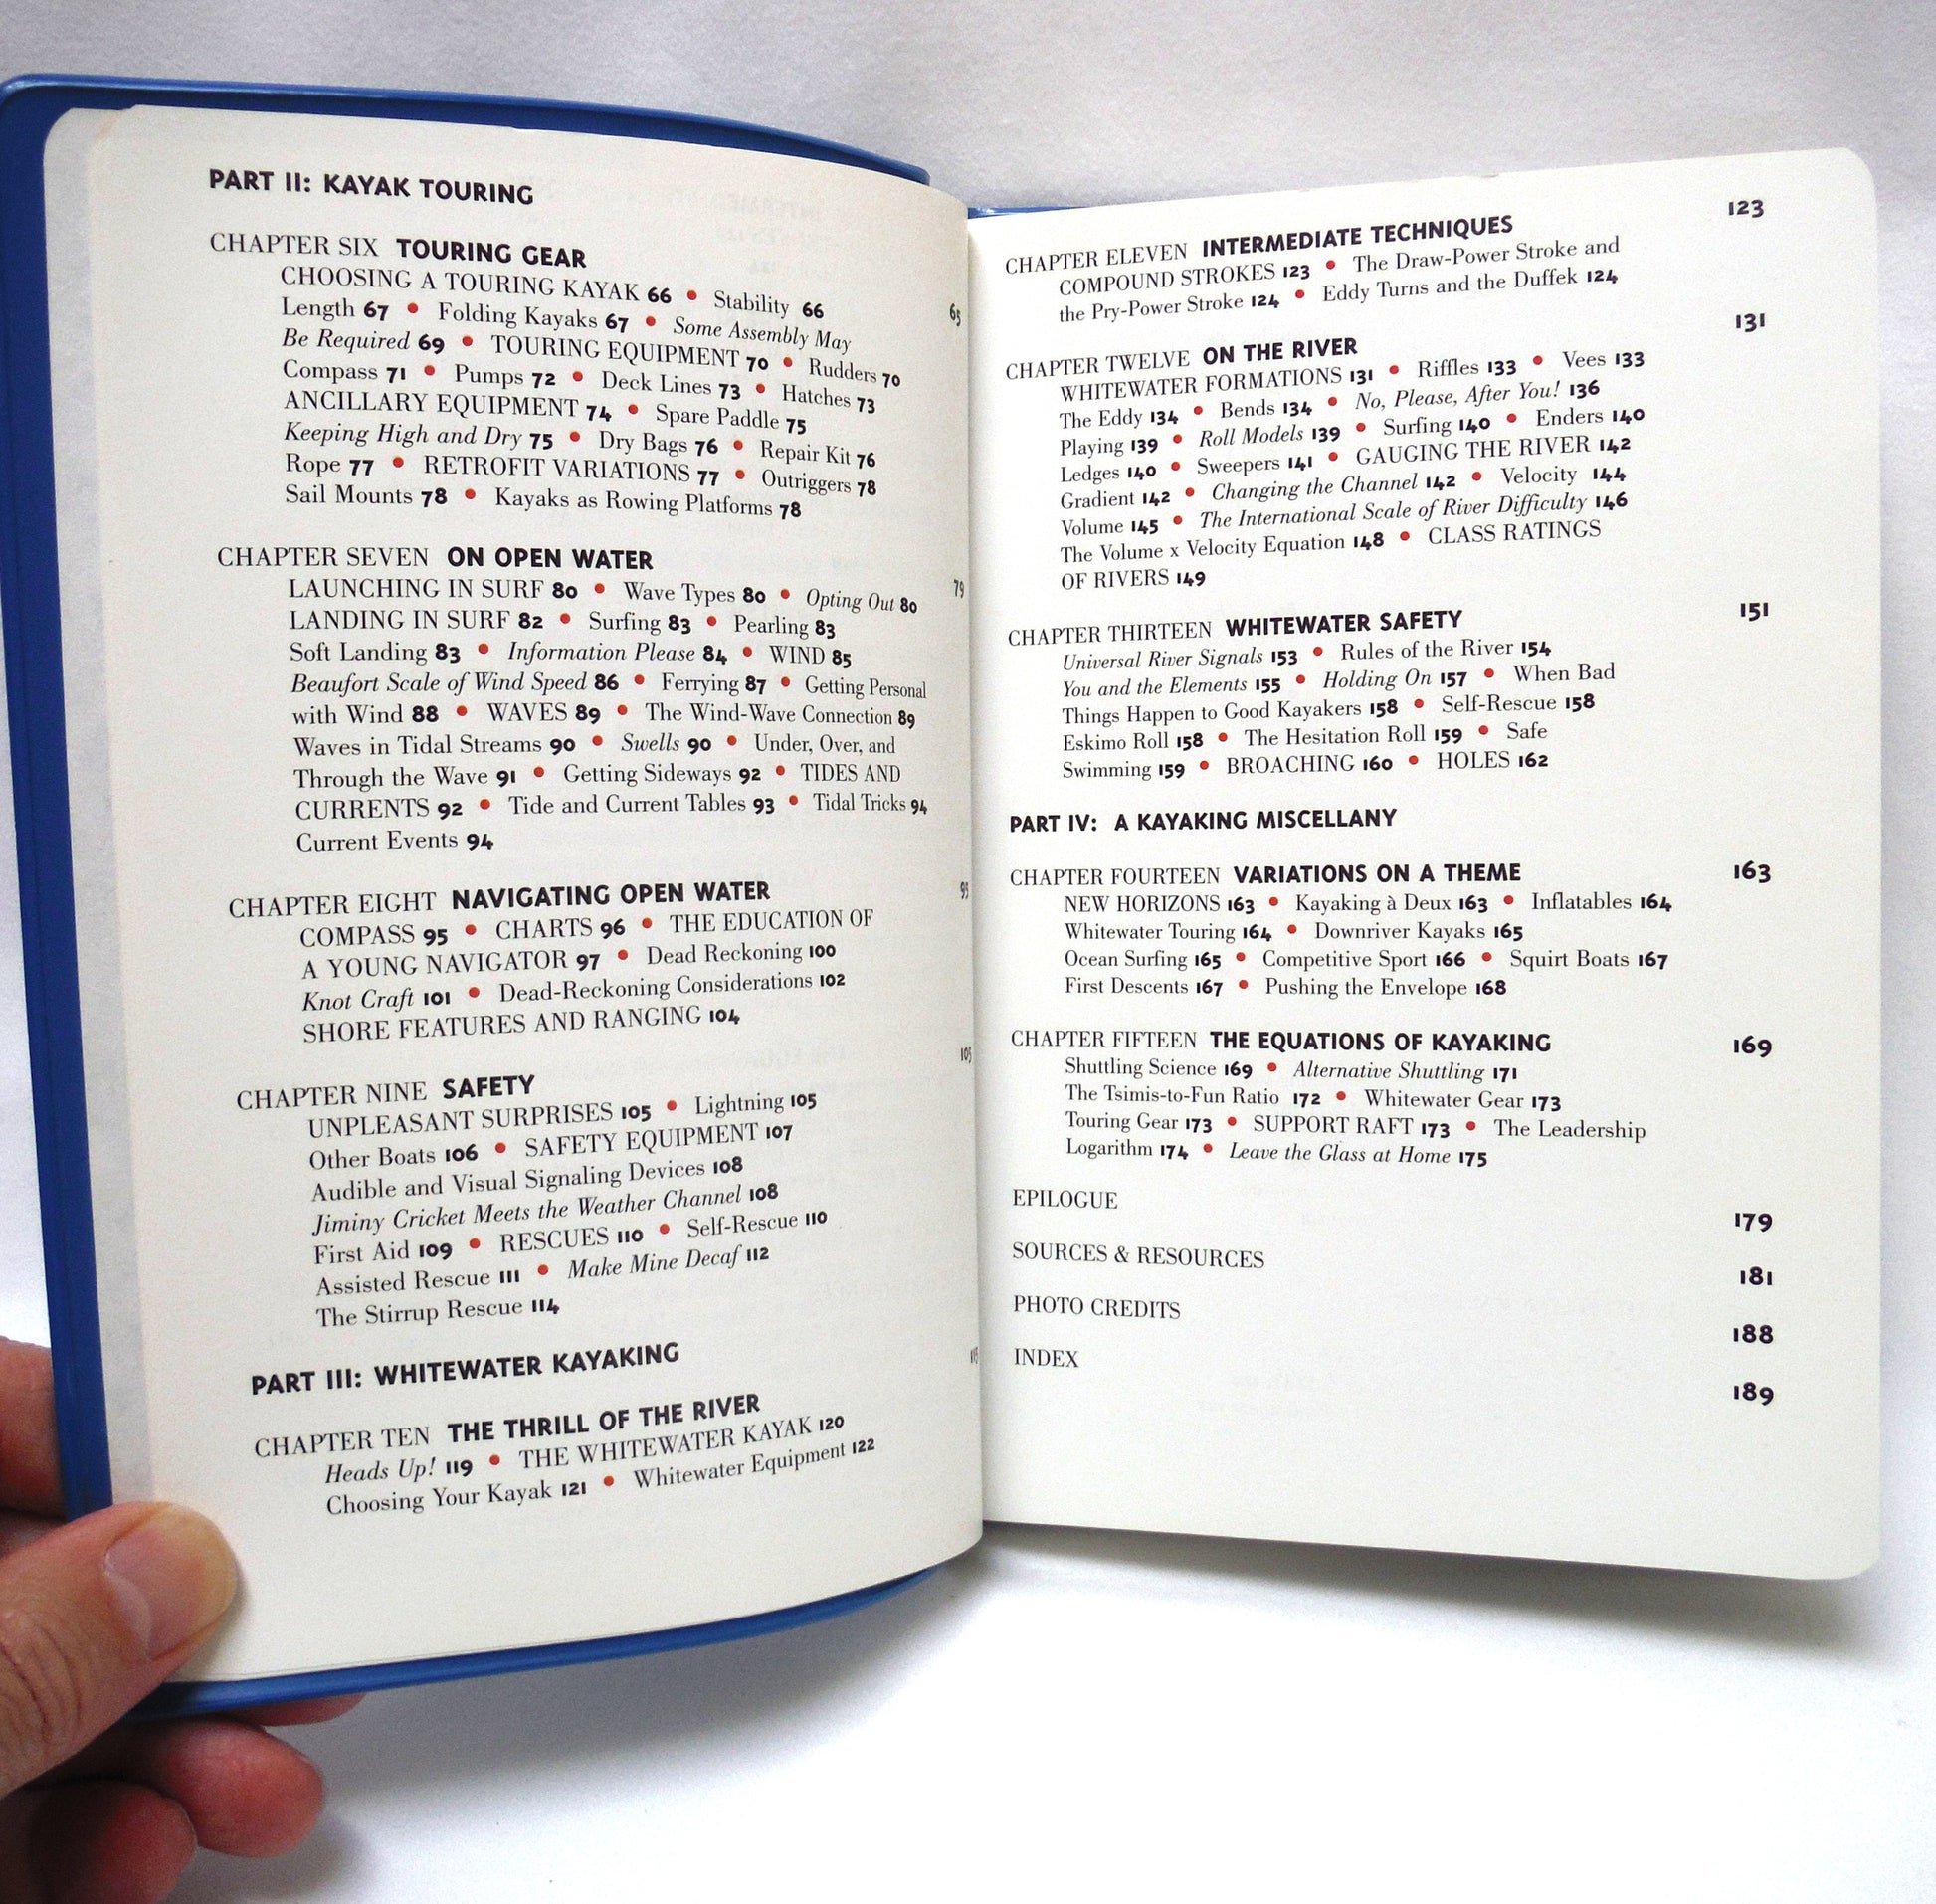 PART II: KAYAK TOURING
CHAPTER SIX TOURING GEAR 65
CHOOSING A TOURING KAYAK 66 • Stability 66
Length 67 • Folding Kayaks 67 • Some Assembly May
Be Required 69 • TOURING EQUIPMENT 70 • Rudders 70
Compass 71 • Pumps 72 • Deck Lines 73 • Hatches 73
ANCILLARY EQUIPMENT 74 • Spare Paddle 75
Keeping High and Dry 75 • Dry Bags 76 • Repair Kit 76
Rope 77 • RETROFIT VARIATIONS 77 • Outriggers 78
Sail Mounts 78 • Kayaks as Rowing Platforms 78
CHAPTER SEVEN ON OPEN WATER 79
LAUNCHING IN SURF 80 • Wave Types 80 • Opting Out 80
LANDING IN SURF 82 • Surfing 83 • Pearling 83
Soft Landing 83 • Information Please 84 • WIND 85
Beaufort Scale of Wind Speed 86 • Ferrying 87 • Getting Personal
with Wind 88 • WAVES 89 • The Wind-Wave Connection 89
Waves in Tidal Streams 90 • Swells 90 • Under, Over, and
Through the Wave 91 • Getting Sideways 92 • TIDES AND
CURRENTS 92 • Tide and Current Tables 93 • Tidal Tricks 94
Current Events 94
CHAPTER EIGHT NAVIGATING OPEN WATER 95
COMPASS 95 • CHARTS 96 • THE EDUCATION OF
A YOUNG NAVIGATOR 97 • Dead Reckoning 100
Knot Craft 101 • Dead-Reckoning Considerations 102
SHORE FEATURES AND RANGING 104
CHAPTER NINE SAFETY 105
UNPLEASANT SURPRISES 105 • Lightning 105
Other Boats 106 • SAFETY EQUIPMENT 107
Audible and Visual Signaling Devices 108
Jiminy Cricket Meets the Weather Channel 108
First Aid 109 • RESCUES 110 • Self-Rescue 110
Assisted Rescue 111 • Make Mine Decaf 112
The Stirrup Rescue 114
PART III: WHITEWATER KAYAKING
CHAPTER TEN THE THRILL OF THE RIVER
Heads Up! 119 • THE WHITEWATER KAYAK 120
Choosing Your Kayak 121 • Whitewater Equipment 122
CHAPTER ELEVEN INTERMEDIATE TECHNIQUES 123
COMPOUND STROKES 123 • The Draw-Power Stroke and
the Pry-Power Stroke 124 • Eddy Turns and the Duffek 124
CHAPTER TWELVE ON THE RIVER 131
WHITEWATER FORMATIONS 131 • Riffles 133 • Vees 133
The Eddy 134 • Bends 134 • No, Please, After You! 136
Playing 139 • Roll Models 139 • Surfing 140 • Enders 140
Ledges 140 • Sweepers 141 • GAUGING THE RIVER 142
Gradient 142 • Changing the Channel 142 • Velocity 144
Volume 145 • The International Scale of River Difficulty 146
The Volume x Velocity Equation 148 • CLASS RATINGS
OF RIVERS 149
CHAPTER THIRTEEN WHITEWATER SAFETY 151
Universal River Signals 153 • Rules of the River 154
You and the Elements 155 • Holding On 157 • When Bad
Things Happen to Good Kayakers 158 • Self-Rescue 158
Eskimo Roll 158 • The Hesitation Roll 159 • Safe
Swimming 159 • BROACHING 160 • HOLES 162
PART IV: A KAYAKING MISCELLANY
CHAPTER FOURTEEN VARIATIONS ON A THEME 163
NEW HORIZONS 163 • Kayaking à Deux 163 • Inflatables 164
Whitewater Touring 164 • Downriver Kayaks 165
Ocean Surfing 165 • Competitive Sport 166 • Squirt Boats 167
First Descents 167 • Pushing the Envelope 168
CHAPTER FIFTEEN THE EQUATIONS OF KAYAKING 169
Shuttling Science 169 • Alternative Shuttling 171
The Tsimis-to-Fun Ratio 172 • Whitewater Gear 173
Touring Gear 173 • SUPPORT RAFT 173 • The Leadership
Logarithm 174 • Leave the Glass at Home 175
EPILOGUE 179
SOURCES & RESOURCES 181
PHOTO CREDITS 188
INDEX 189